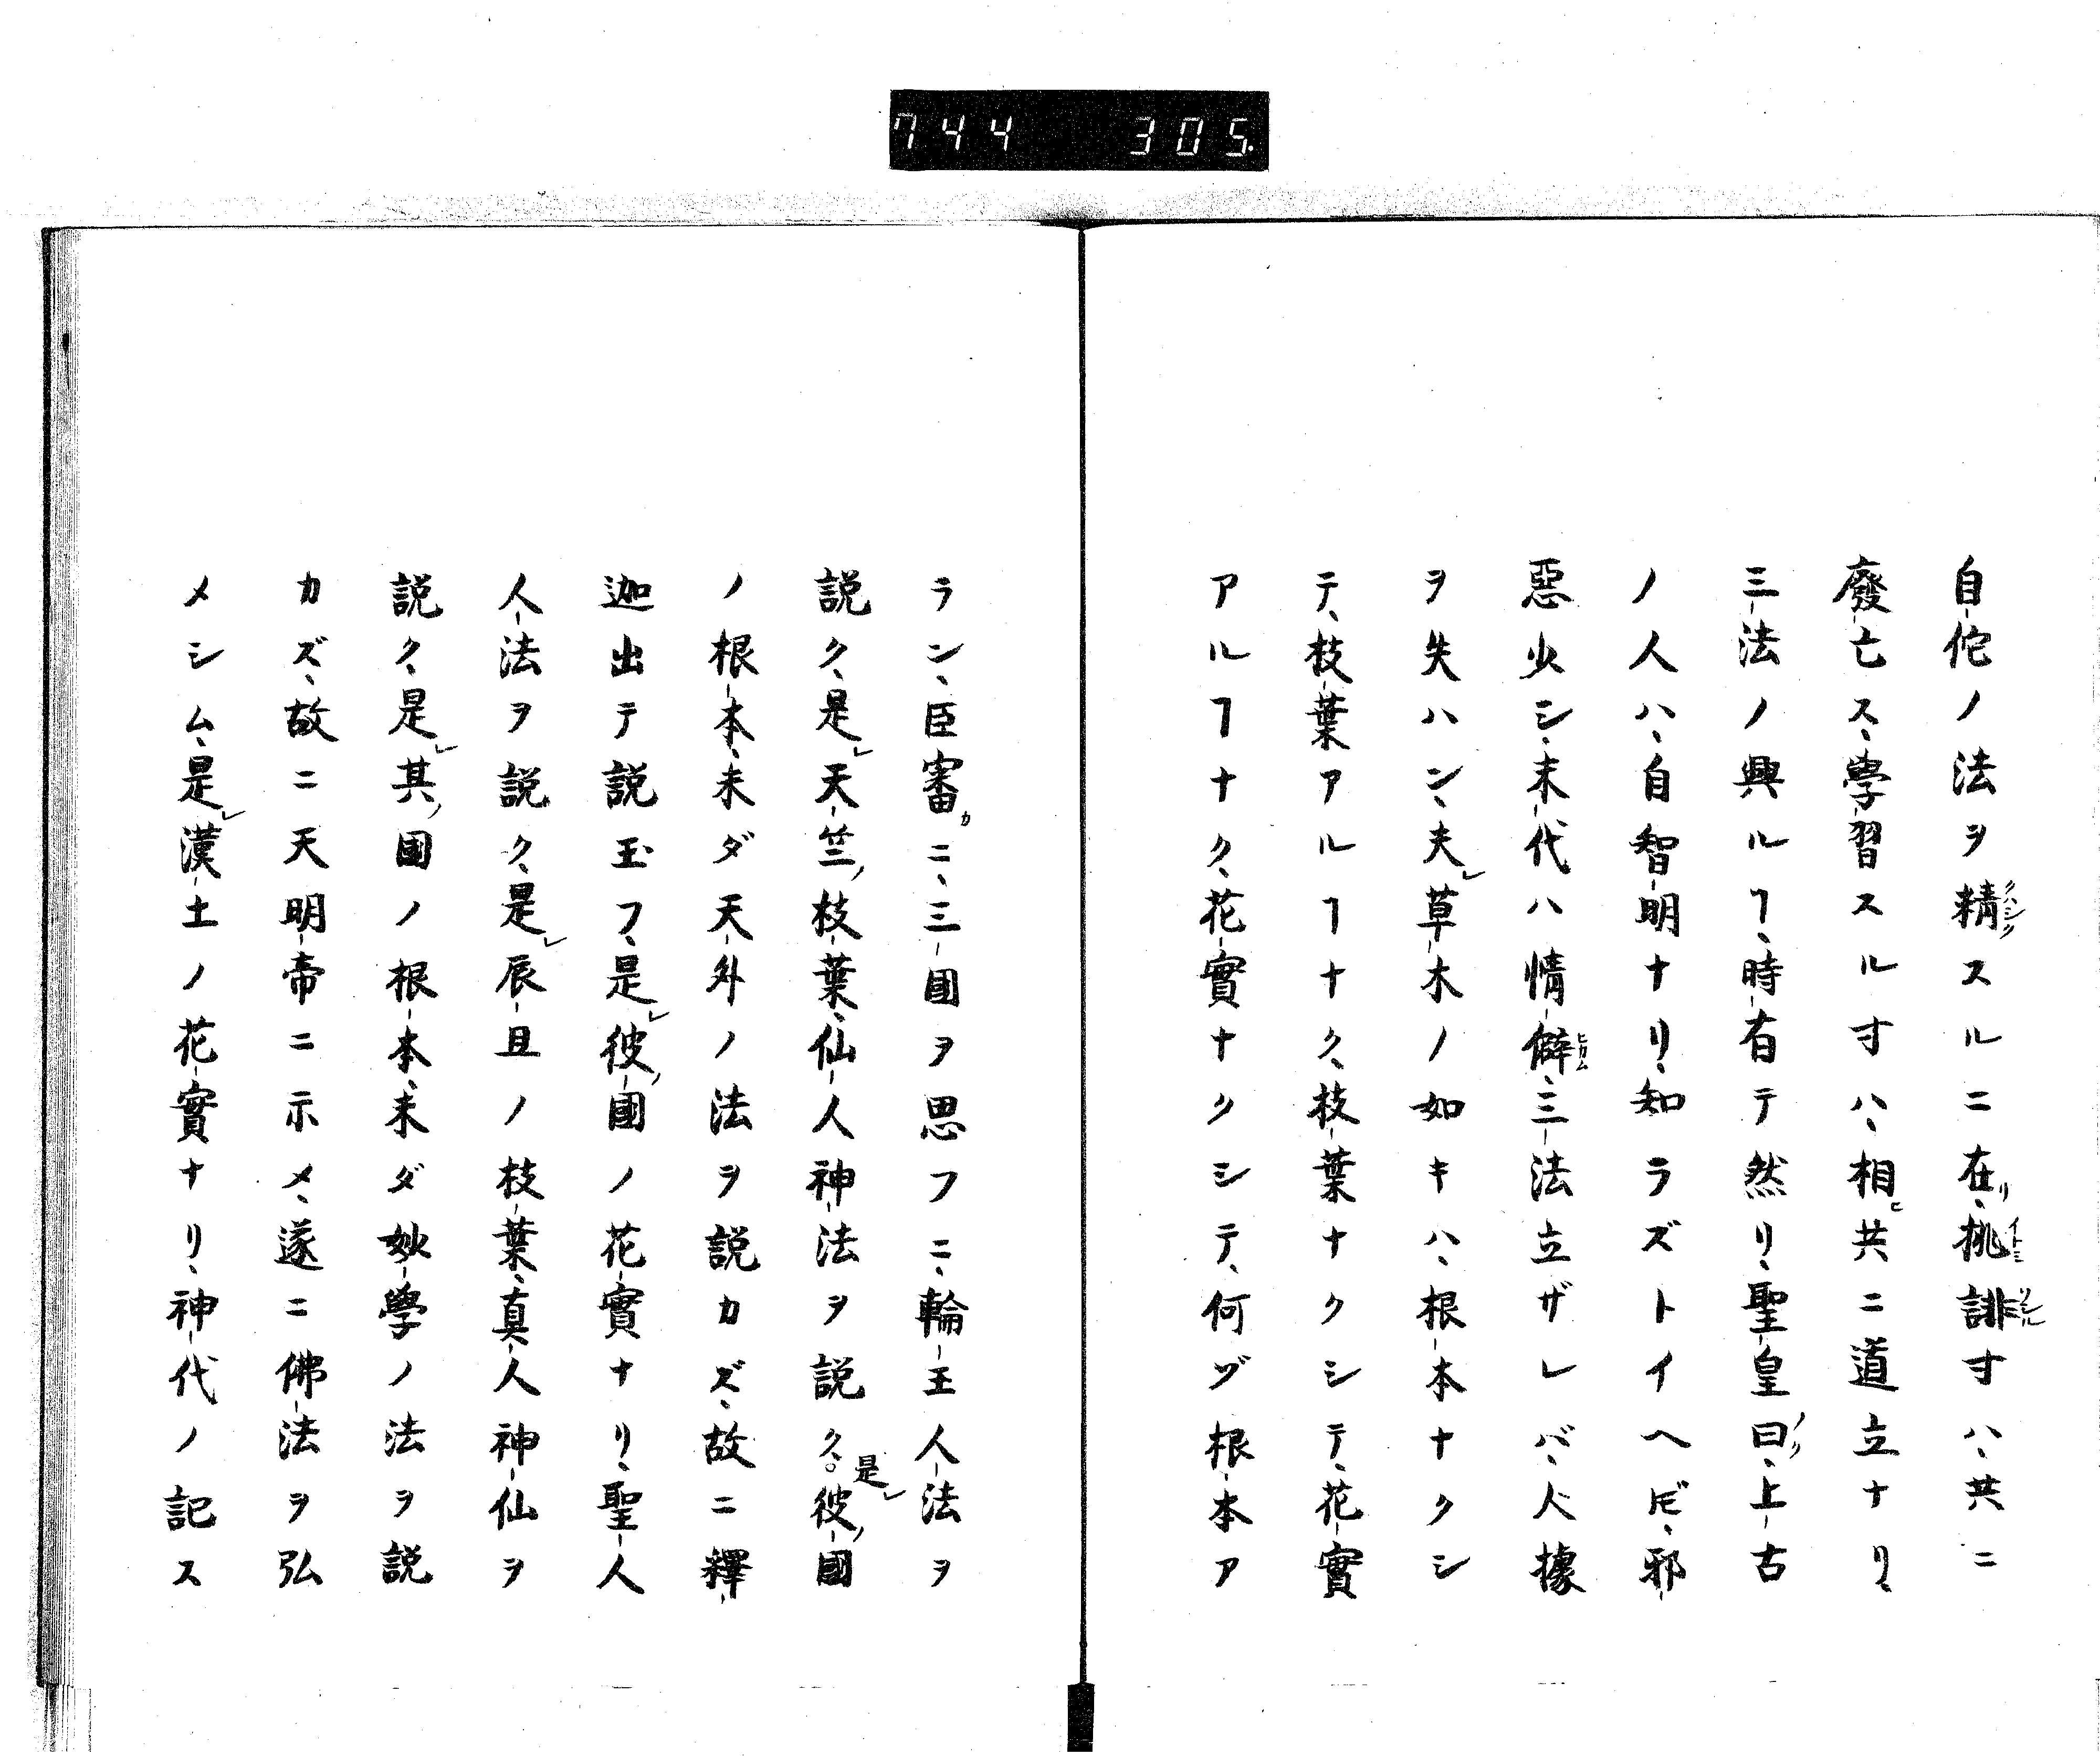 744 305.
自佗ノ法ヲ精スルニ在リ、挑誹寸ハ、共ニ
廢亡ス、學習スル寸ハ、相ヒ共ニ道立ナリ、
三法ノ興ルヿ、時有テ然リ、聖皇曰ノク、上古
ノ人ハ、自智明ナリ、知ラズトイヘ𪜈、邪
惡少シ、末代ハ情僻ヒガム、三法立ザレバ、人據
ヲ失ハン、夫レ草木ノ如キハ、根本ナクシ
テ、枝葉アルヿナク、枝葉ナクシテ、花實
アルヿナク、花實ナクシテ、何ヅ根本ア
ラン、臣審カニ、三國ヲ思フニ、輪王人法ヲ
説ク、是レ天竺ノ枝葉、仙人神法ヲ説ク、是レ彼ノ國
ノ根本、未ダ天外ノ法ヲ説カズ、故ニ釋
迦出テ説玉フ、是レ彼ノ國ノ花實ナリ、聖人
人法ヲ説ク、是レ辰旦ノ枝葉、真人神仙ヲ
説ク、是レ其ノ國ノ根本、未ダ妙學ノ法ヲ説
カズ、故ニ天明帝ニ示メ、遂ニ佛法ヲ弘
メシム、是レ漢土ノ花實ナリ、神代ノ記ス